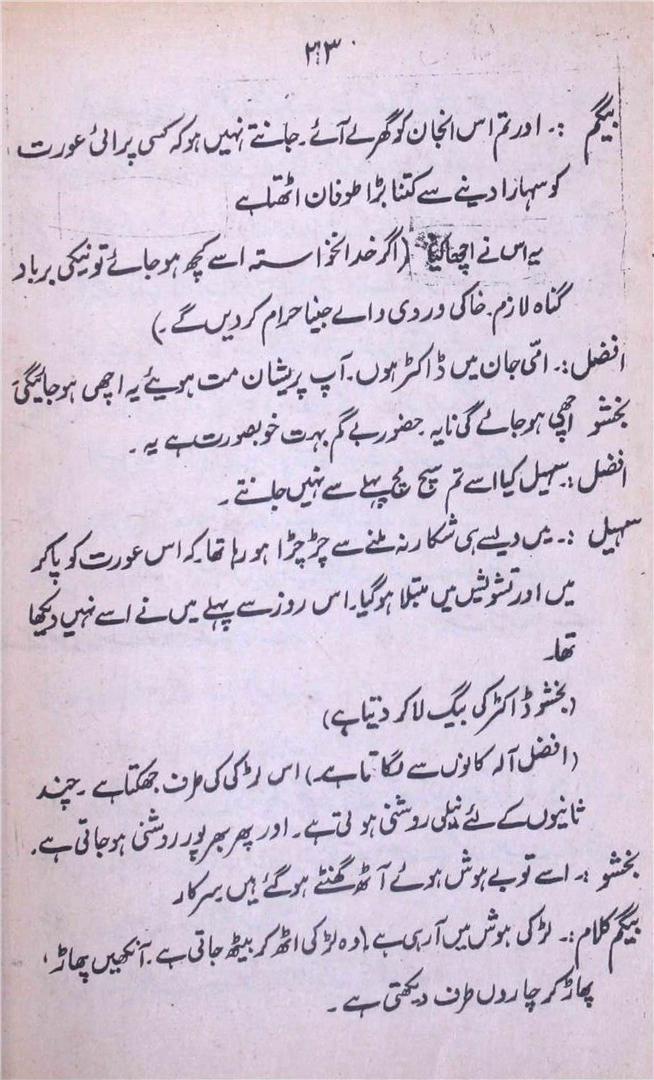 ۲۳
بیگم :۔ اور تم اس انجان کو گھر لے آئے۔ جانتے نہیں ہو کہ کسی پرائی عورت
کو سہارا دینے سے کتنا بڑا طوفان اٹھتا ہے
یہ اس نے اچھا کیا (اگر خدا نخواستہ اسے کچھ ہو جائے تو نیکی برباد
گناہ لازم۔ خاکی وردی والے جینا حرام کر دیں گے۔)
افضل :۔ امی جان میں ڈاکٹر ہوں۔ آپ پریشان مت ہویئے یہ اچھی ہو جائیگی
بخشو اچھی ہو جائے گی نا یہ حضور بے گم بہت خوبصورت ہے یہ۔
افضل :۔ سہیل کیا اسے تم سچ مچ پہلے سے نہیں جانتے۔
سہیل :۔ میں ویسے ہی شکار نہ ملنے سے چڑچڑا ہو رہا تھا کہ اس عورت کو پا کر
میں اور تشویش میں مبتلا ہو گیا۔ اس روز سے پہلے میں نے اسے نہیں دیکھا
تھا۔
(بخشو ڈاکٹر کی بیگ لا کر دیتا ہے)
(افضل آلہ کانوں سے لگاتا ہے۔) اس لڑکی کی طرف جھکتا ہے۔ چند
ثانیوں کے لئے نیلی روشنی ہوتی ہے۔ اور پھر بھرپور روشنی ہو جاتی ہے۔
بخشو :۔ اسے تو بے ہوش ہوئے آٹھ گھنٹے ہو گئے ہیں سرکار
بیگم کلام :۔ لڑکی ہوش میں آ رہی ہے (وہ لڑکی اٹھ کر بیٹھ جاتی ہے۔ آنکھیں پھاڑ،
پھاڑ کر چاروں طرف دیکھتی ہے۔